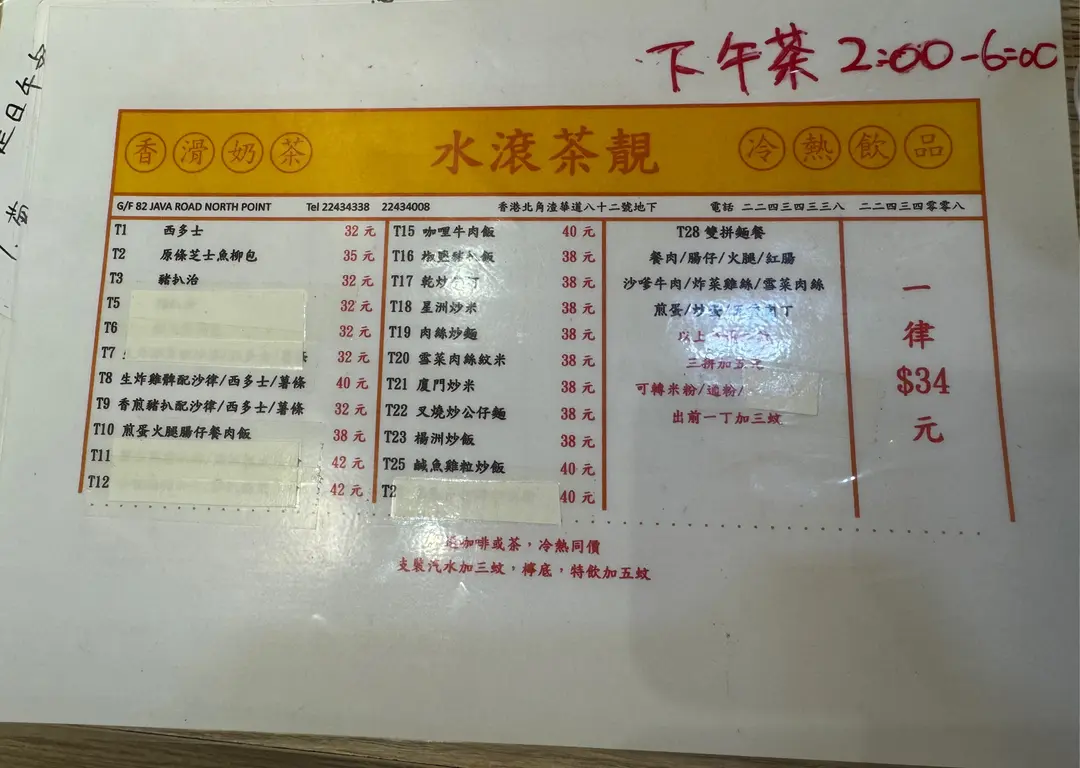 下午茶 2:00-6:00
香滑奶茶 水滾茶靚 冷熱飲品
G/F 82 JAVA ROAD NORTH POINT Tel 22434338 22434008 香港北角渣華道八十二號地下 電話 二二四三四三三八 二二四三四零零八
T1 西多士 32 元
T2 原條芝士魚柳包 35 元
T3 豬扒治 32 元
T5 32 元
T6 32 元
T7 32 元
T8 生炸雞髀配沙律/西多士/薯條 40 元
T9 香煎豬扒配沙律/西多士/薯條 32 元
T10 煎蛋火腿腸仔餐肉飯 38 元
T11 42 元
T12 42 元
T15 咖哩牛肉飯 40 元
T16 飯 38 元
T17 乾炒 丁 38 元
T18 星洲炒米 38 元
T19 肉絲炒麵 38 元
T20 雪菜肉絲紋米 38 元
T21 廈門炒米 38 元
T22 叉燒炒公仔麵 38 元
T23 揚洲炒飯 38 元
T25 鹹魚雞粒炒飯 40 元
T2 40 元
T28 雙拼麵餐
餐肉/腸仔/火腿/紅腸
沙嗲牛肉/炸菜雞絲/雪菜肉絲
煎蛋/炒 丁
以上
三拼加五元
可轉米粉/通粉/
出前一丁加三蚊
一律$34元
咖啡或茶，冷熱同價
支裝汽水加三蚊，檸底，特飲加五蚊